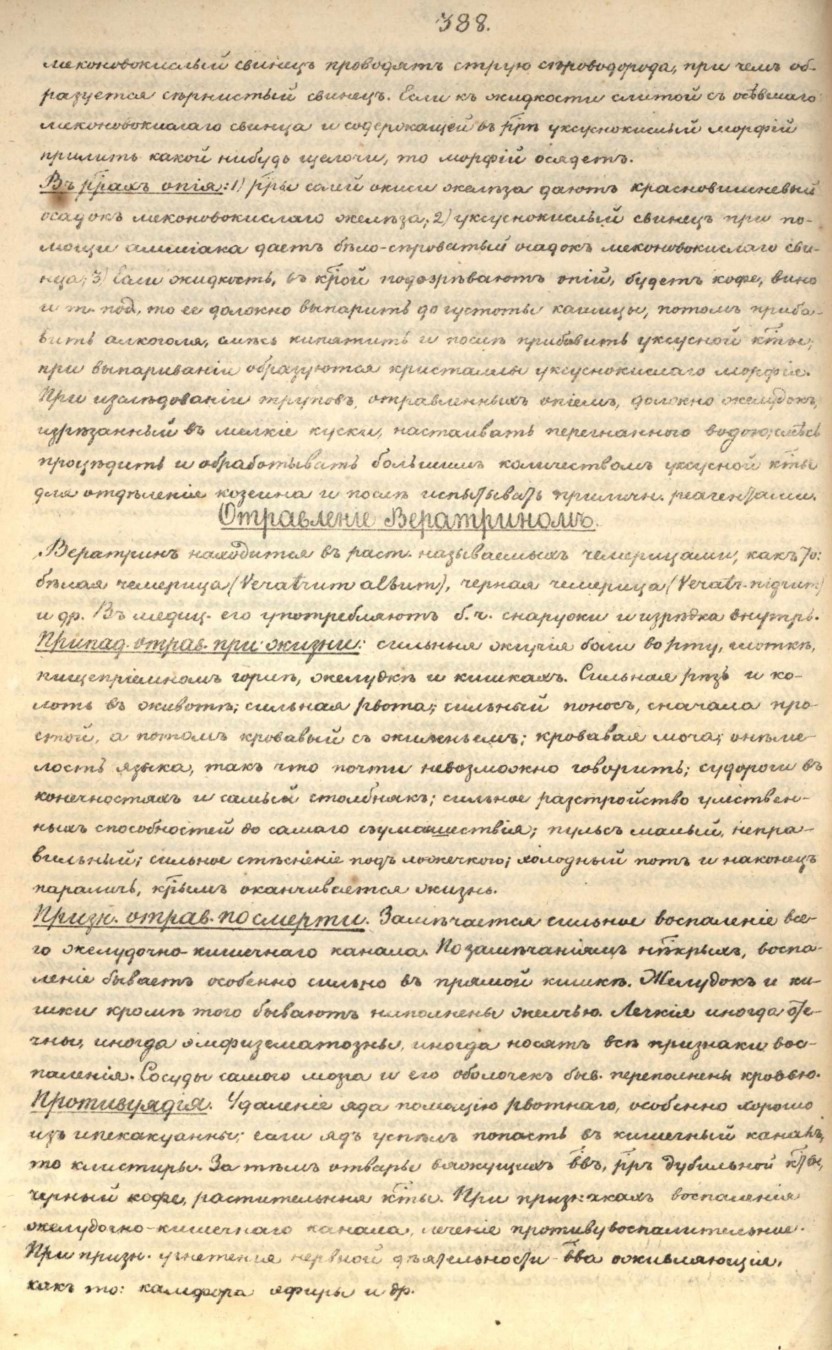 388.
меконовокислый свинецъ проводятъ струю сѣроводорода, при чемъ об-
разуется сѣрнистый свинецъ. Если къ жидкости слитой съ осѣвшаго
меконовокислаго свинца и содержащей въ р҃рѣ уксуснокислый морфій
прилить какой нибудь щелочи, то морфій осядетъ.
Въ р҃рахъ опія: 1) р҃ры солей окиси желѣза даютъ красновишневый
осадокъ меконовокислаго желѣза; 2) уксуснокислый свинецъ при по-
мощи амміака даетъ бѣло-сѣроватый осадокъ меконовокислаго сви-
нца; 3) Если жидкость, въ к҃рой подозрѣваютъ опій, будетъ кофе, вино
и т. под., то ее должно выпарить до густоты кашицы, потомъ приба-
вить алкоголя, смѣсь кипятить и послѣ прибавить уксусной к҃ты;
при выпариваніи образуются кристаллы уксуснокислаго морфія.
При изслѣдованіи труповъ, отравленныхъ опіемъ, должно желудокъ,
изрѣзанный въ мелкіе куски, настаивать перегнанного водою; смѣсь
процѣдить и обработывать большимъ количествомъ уксусной к҃ты
для отдѣленіе козеина и послѣ испытывать приличн. реагентами.
Отравленіе Вератриномъ.
Вератринъ находится въ раст. называемыхъ чемерицами, какъ то:
бѣлая чемерица (Veratrum album), черная чемерица (Veratr. nigrum)
и др. Въ медиц. его употребляютъ б. ч. снаружи и изрѣдка внутрь.
Припад. отрав. при жизни: сильныя жгучія боли во рту, глоткѣ,
пищепріемномъ горлѣ, желудкѣ и кишкахъ. Сильная рѣзь и ко-
лотъ въ животѣ; сильная рвота; сильный поносъ, сначала про-
стой, а потомъ кровавый съ жиленьемъ; кровавая моча; онѣме-
лость языка, такъ что почти невозможно говорить; судороги въ
конечностяхъ и самый столбнякъ; сильное разстройство умствен-
ныхъ способностей до самаго съумашествія; пульсъ малый, непра-
вильный; сильное стѣсненіе подъ ложечкою; холодный потъ и наконецъ
параличъ, к҃рымъ оканчивается жизнь.
Призн. отрав. по смерти. Замѣчается сильное воспаленіе все-
го желудочно-кишечнаго канала. По замѣчаніямъ нѣк҃рыхъ, воспа-
леніе бываетъ особенно сильно въ прямой кишкѣ. Желудокъ и ки-
шки кромѣ того бываютъ наполнены желчью. Легкіе иногда оте-
чны, иногда эмфизематозны, иногда носятъ всѣ признаки вос-
паленія. Сосуды самого мозга и его оболочекъ быв. переполнены кровью.
Противуядія. Удаленіе яда помощію рвотнаго, особенно хорошо
изъ ипекакуанны; если ядъ успѣлъ попасть въ кишечный каналъ,
то клистиры. За тѣмъ отвары вяжущихъ в҃въ, р҃ръ дубильной к҃ты,
черный кофе, растительныя к҃ты. При признакахъ воспаленія
желудочно-кишечнаго канала, леченіе противувоспалительное.
При призн. угнетенія нервной дѣятельности в҃ва оживляющія,
какъ то: камфора эфиры и др.